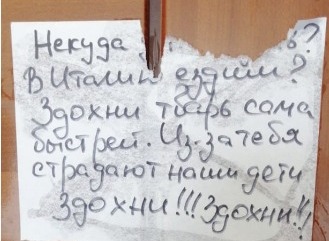 Некуда
В Италию ездим?
Здохни тварь сама
быстрей. Из-за тебя
страдают наши дети
Здохни!!! Здохни!!